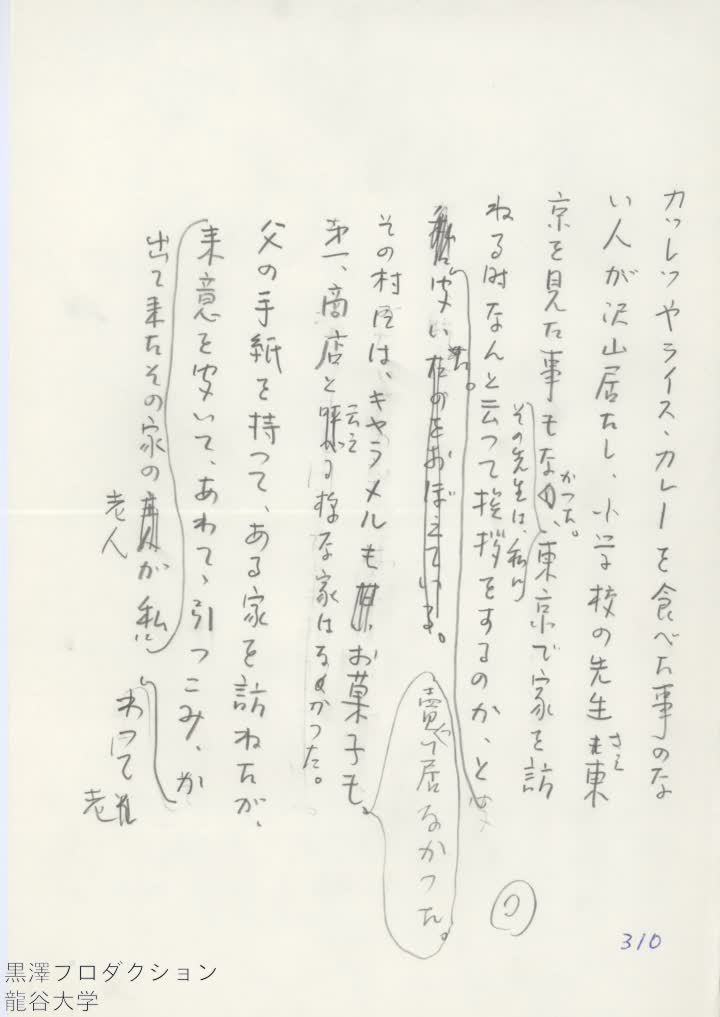 カツレツやライス・カレーを食べた事のな
い人が沢山居たし、小学校の先生さえ東
京を見た事もなかった。東京で家を訪
その先生は、私に
ねる時なんと云って挨拶をするのか、と
聞いた。
賣って居なかった。
その村には、キャラメルもお菓子も、
第一、商店と云える様な家はなかった。
父の手紙を持って、ある家を訪ねたが、
来意を聞いて、あわてゝ引っこみ、か
わって老
出て来たその家の老人が私に
7
310
黒澤プロダクション
龍谷大学